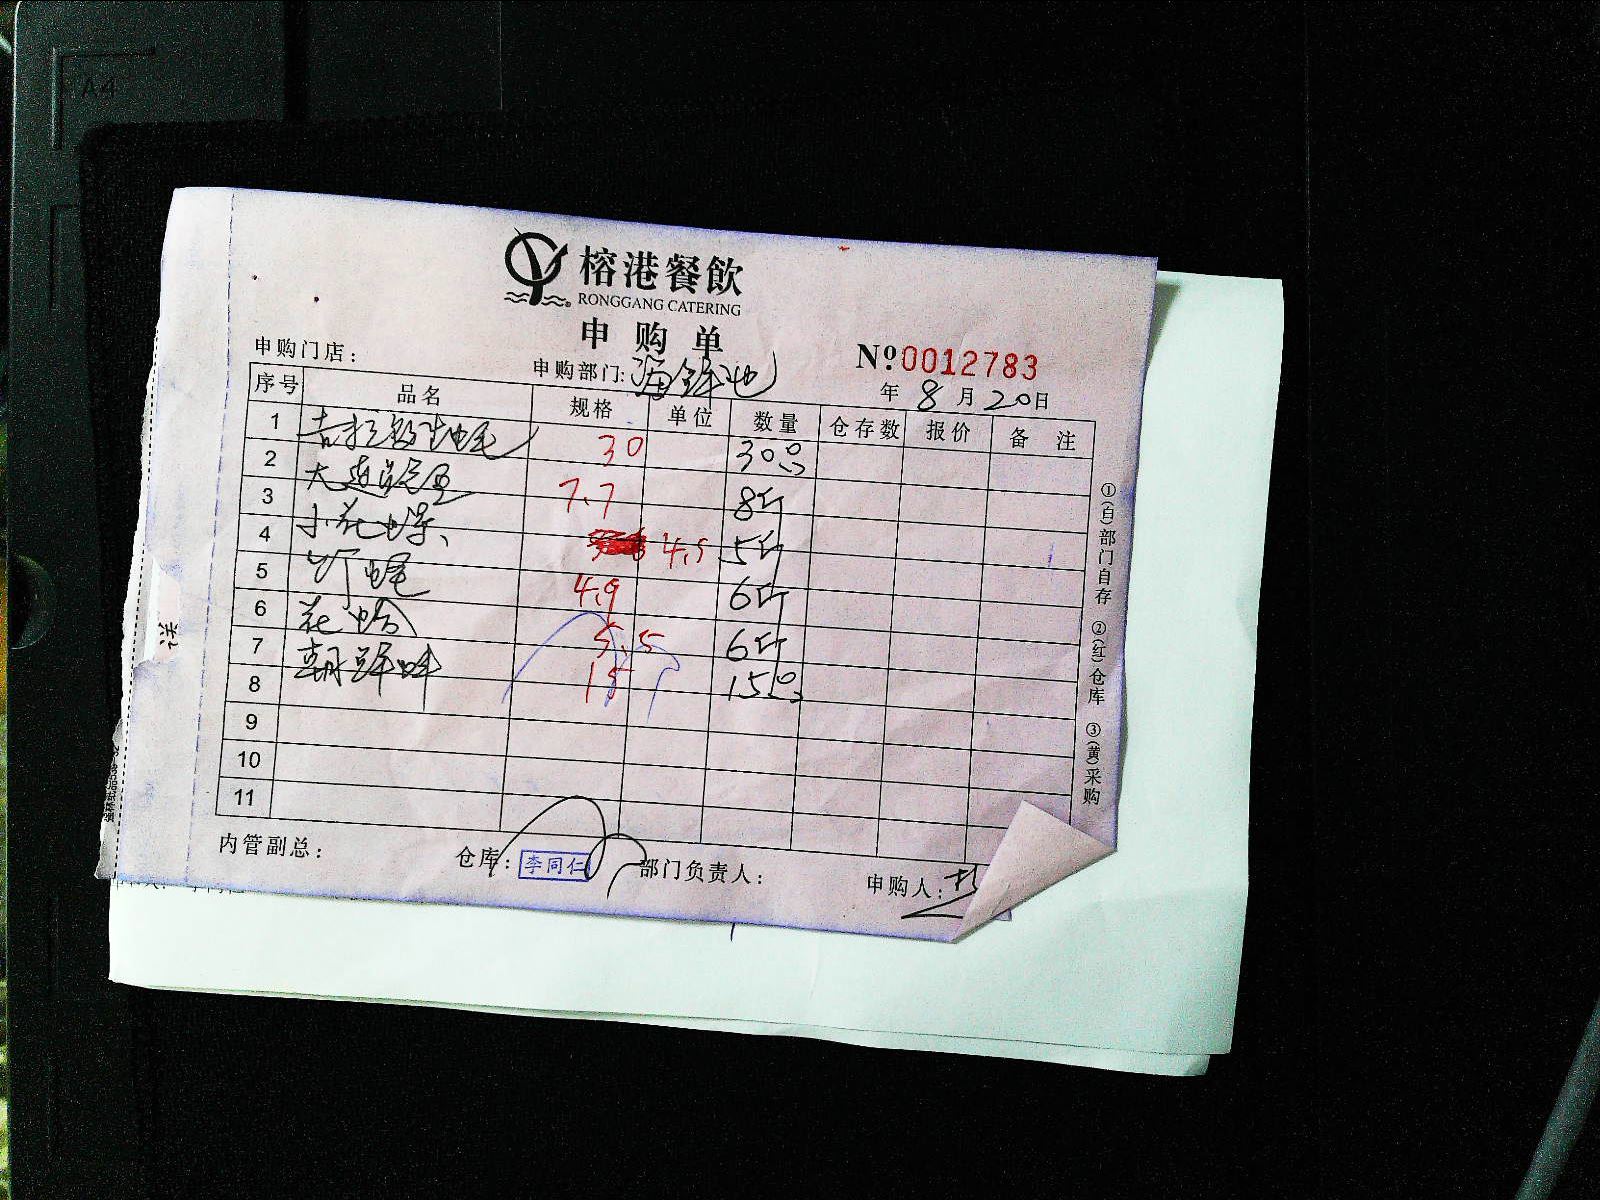 A4
榕港餐飲
RONGGANG CATERING
申购单
申购门店：
申购部门：海鲜池
Nº0012783
年 8 月 20 日
序号 品名 规格 单位 数量 仓存数 报价 备 注
1 吉拉多生蚝 30 30只
2 大连鲍鱼 7.7 8斤
3 小花螺 4.5 5斤
4 竹蛏 4.9 6斤
5 花蛤 5.5 6斤
6 朝鲜蚌 15 15只
7
8
9
10
11
①(白)部门自存 ②(红)仓库 ③(黄)采购
内管副总：
仓库：李同仁
部门负责人：
申购人：